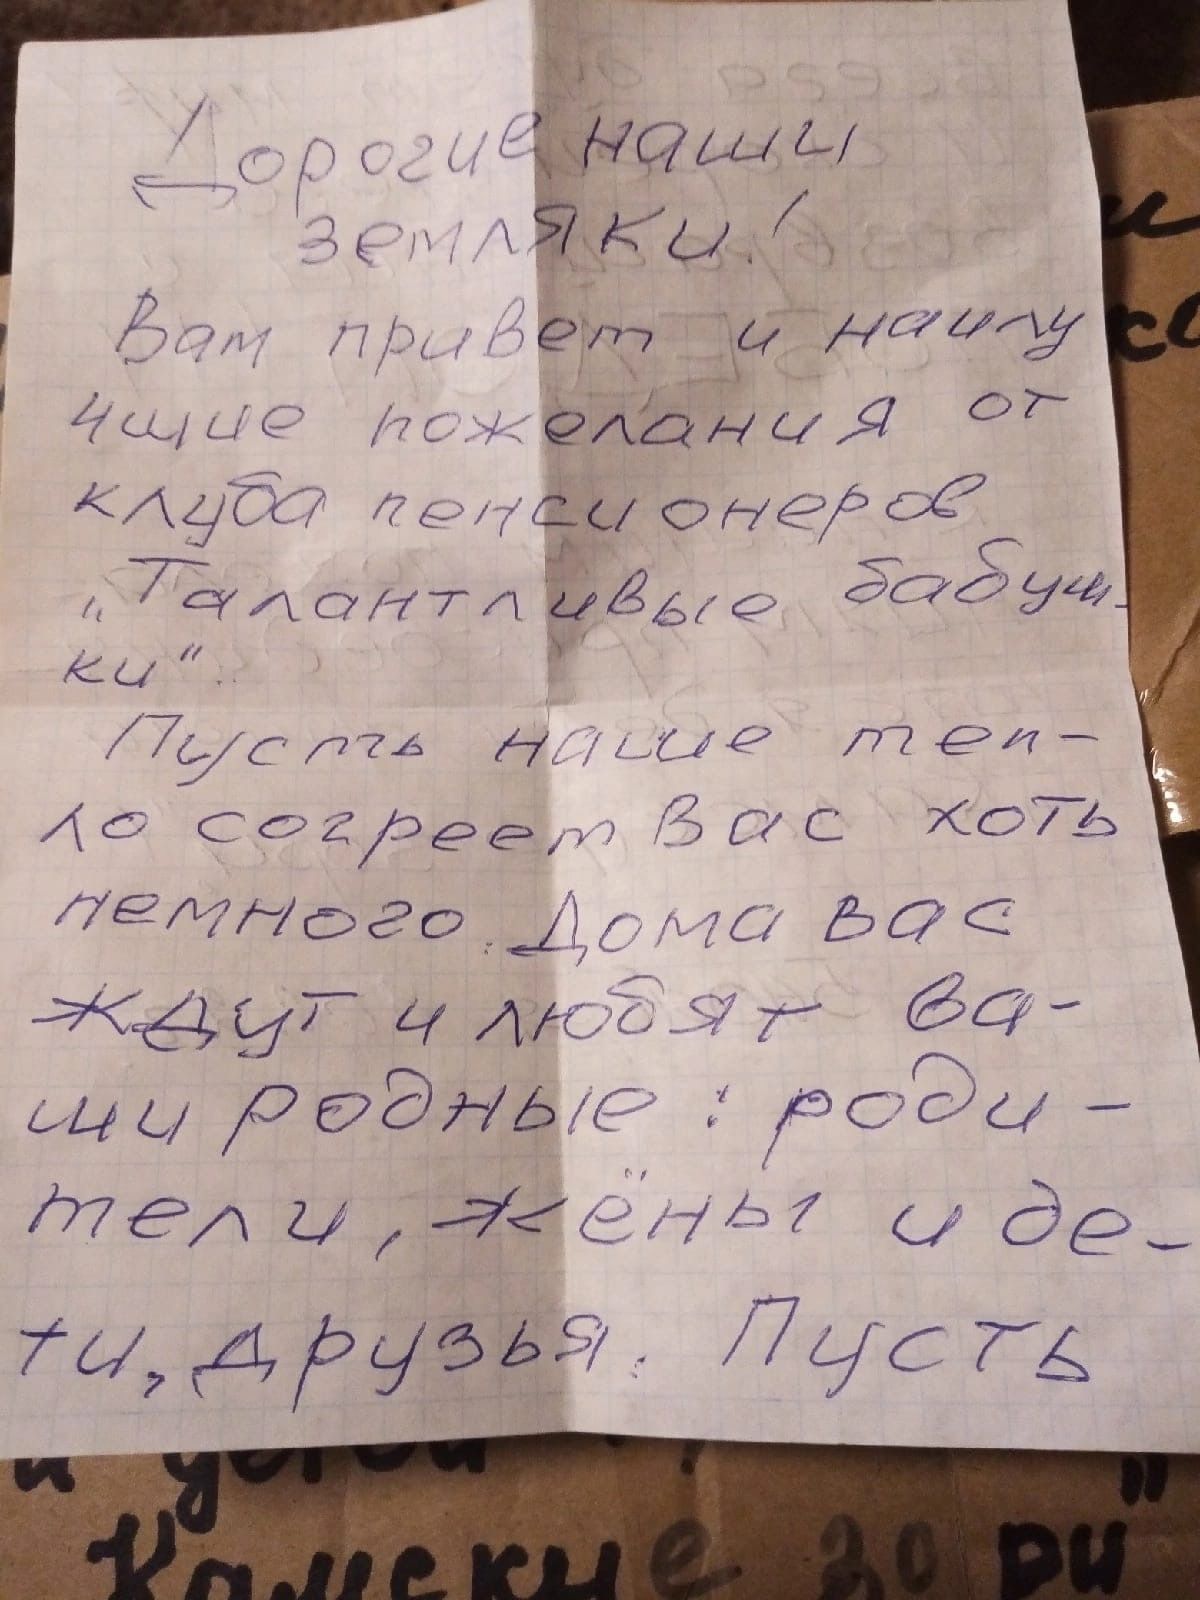 Дорогие наши
земляки!
Вам привет и наилу
чшие пожелания от
клуба пенсионеров
„Талантливые бабуш-
ки".
Пусть наше теп-
ло согреет Вас хоть
немного. Дома вас
ждут и любят ва-
ши родные: роди-
тели, жёны и де-
ти, друзья. Пусть
Камские зори"